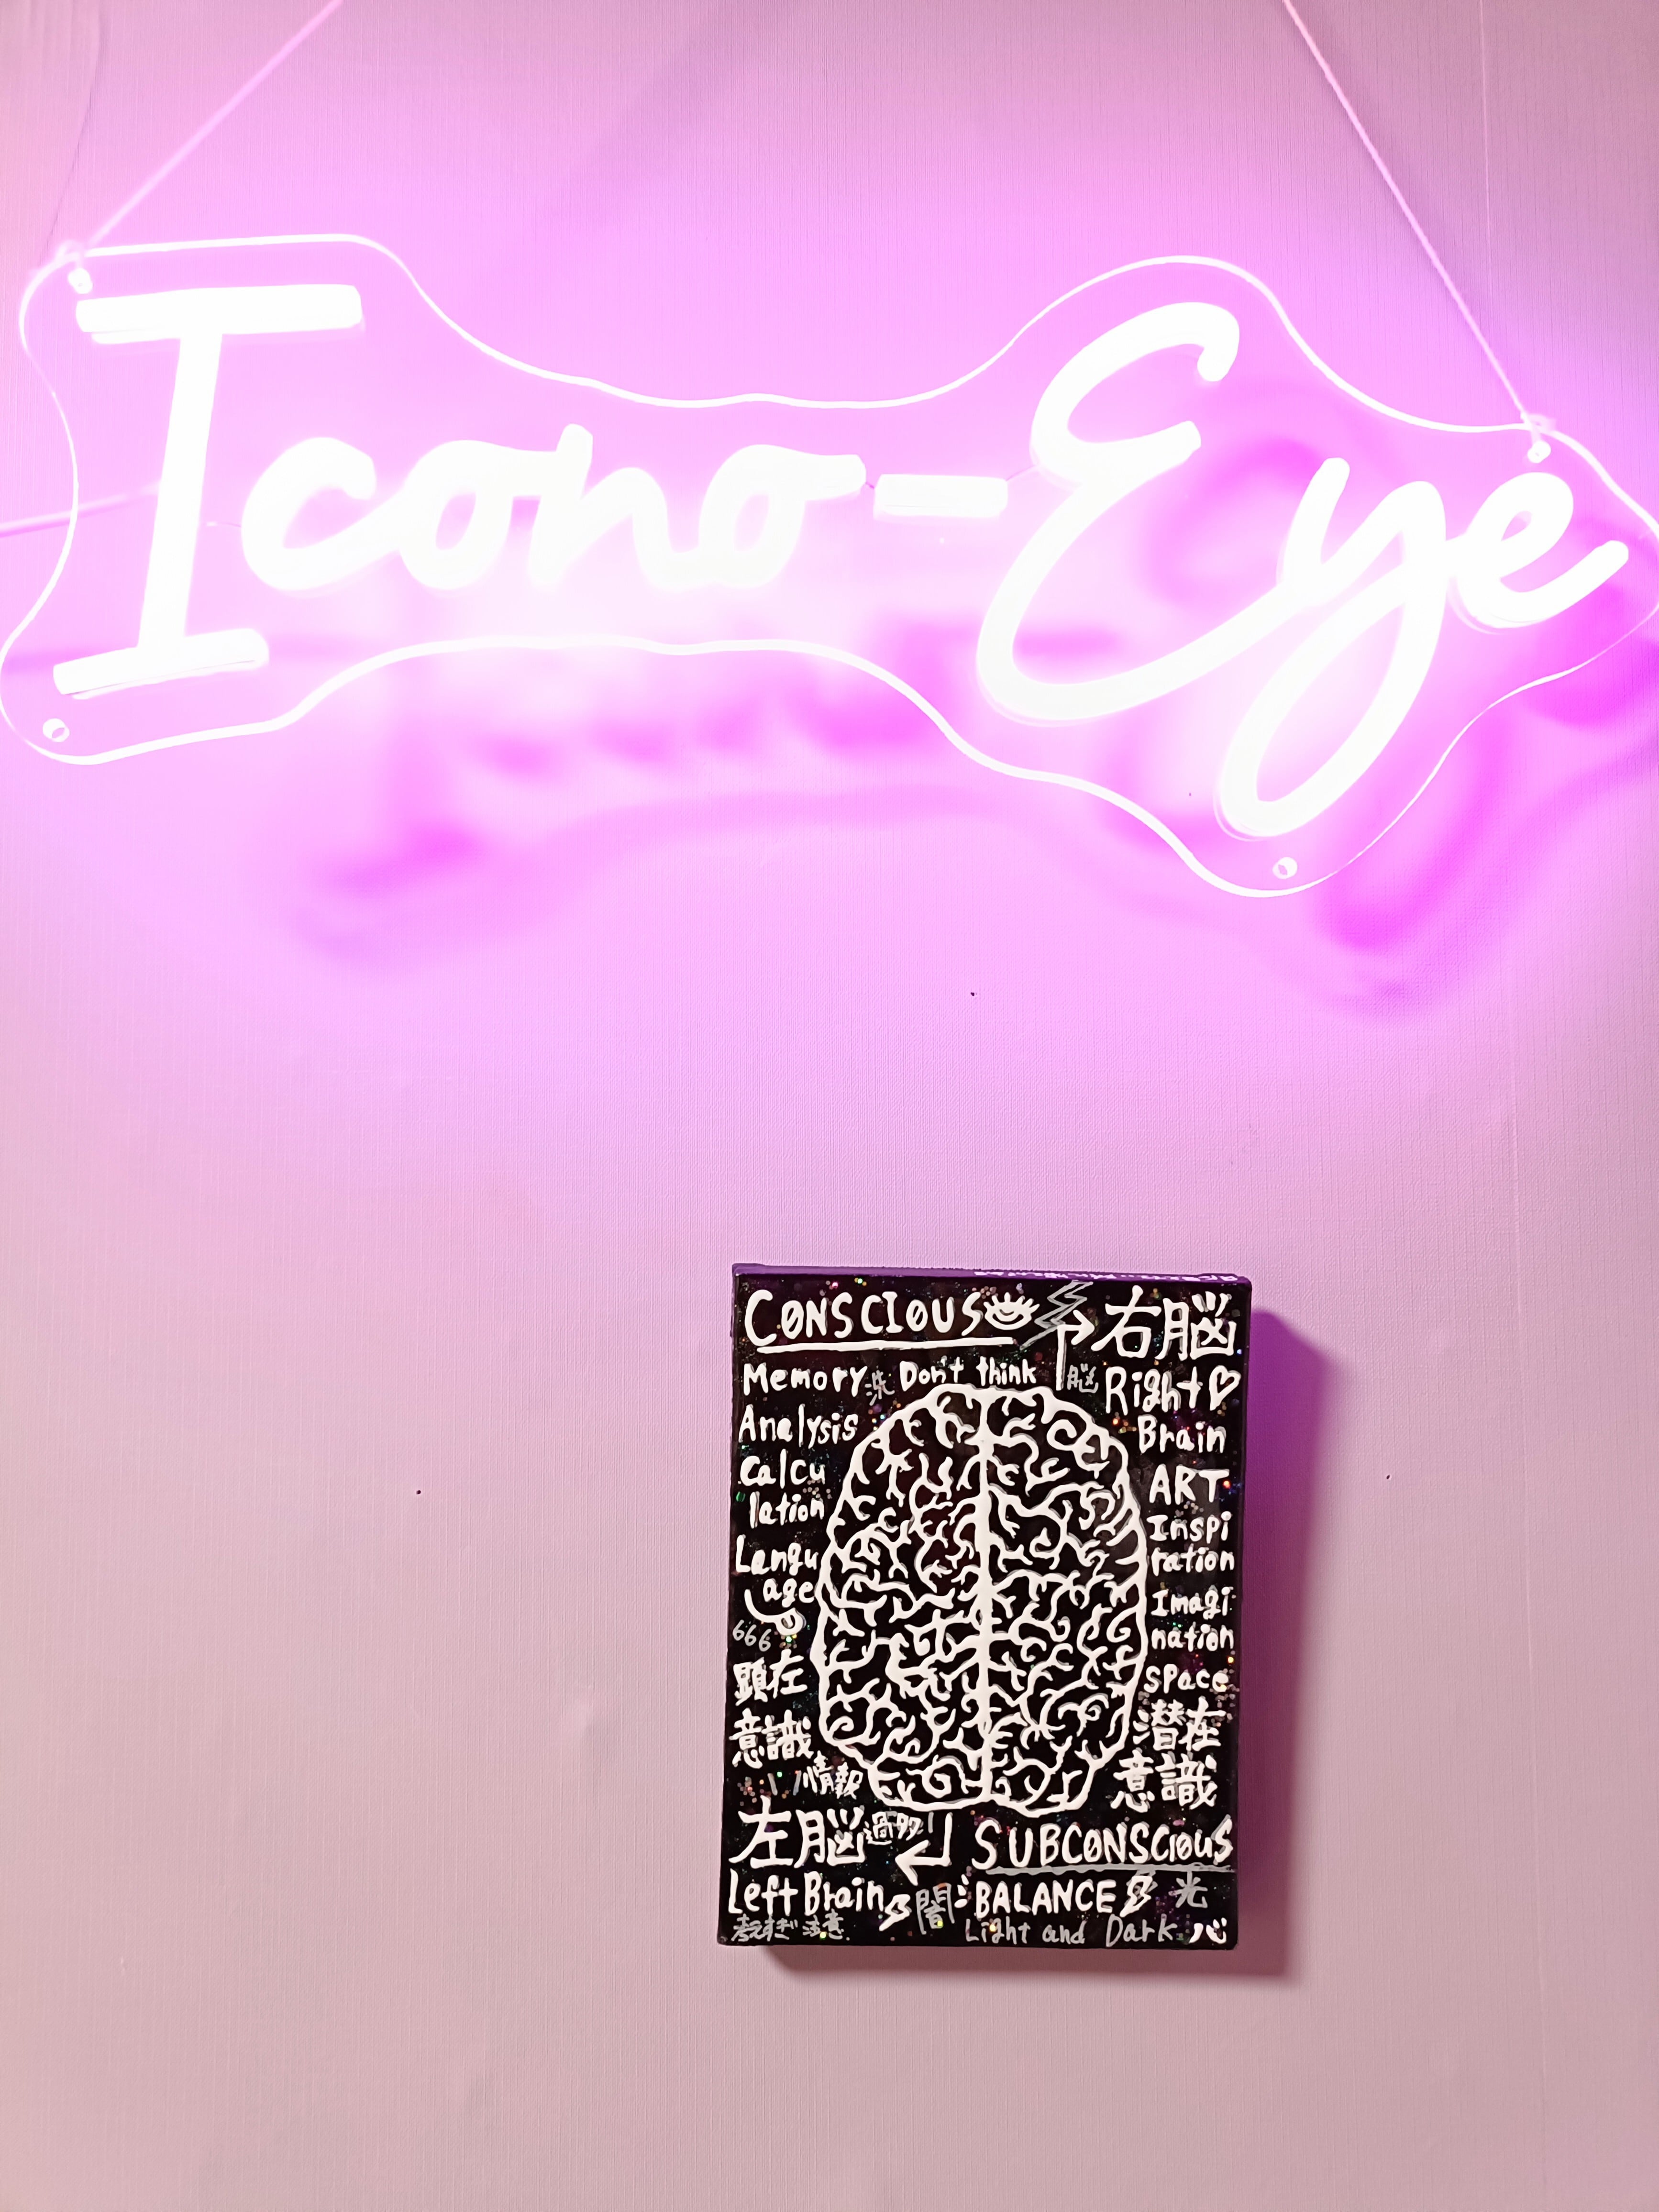 Icono-Eye
CONSCIOUS
右脳
Memory
洗
Don't think
脳
Right
Brain
Analysis
Calcu
lation
ART
Inspi
ration
Langu
age
Imagi
nation
666
space
顕在
意識
潜在
意識
情報
左脳
過多
SUBCONSCIOUS
Left Brain
闇
BALANCE
光
考えすぎ注意
Light and Dark
心